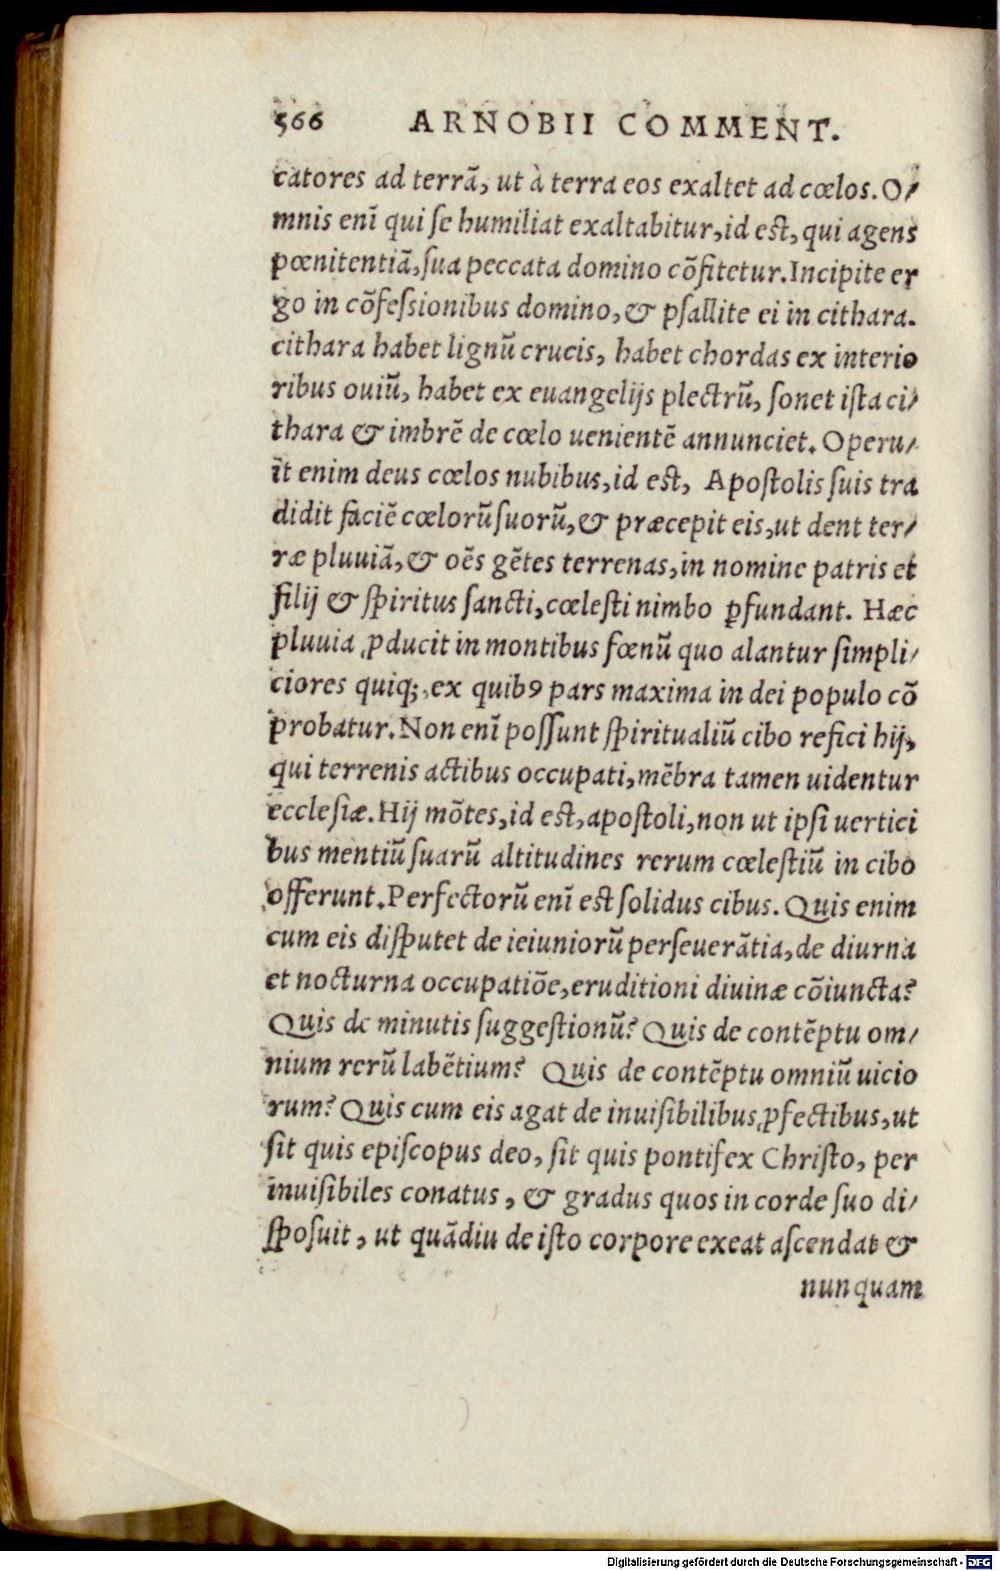 566 ARNOBII COMMENT.
catores ad terrã, ut à terra eos exaltet ad cœlos. O/
mnis enĩ qui ſe humiliat exaltabitur, id eſt, qui agens
pœnitentiã, ſua peccata domino cõfitetur. Incipite er
go in cõfeſsionibus domino, & pſallite ei in cithara.
cithara habet lignũ crucis, habet chordas ex interio
ribus ouiũ, habet ex euangelijs plectrũ, ſonet iſta ci/
thara & imbrẽ de cœlo uenientẽ annunciet. Operu/
it enim deus cœlos nubibus, id eſt, Apoſtolis ſuis tra
didit faciẽ cœlorũ ſuorũ, & præcepit eis, ut dent ter/
ræ pluuiã, & oẽs gẽtes terrenas, in nomine patris et
filij & ſpiritus ſancti, cœleſti nimbo ꝑfundant. Hæc
pluuia ꝓducit in montibus fœnũ quo alantur ſimpli/
ciores quiq;, ex quibꝰ pars maxima in dei populo cõ
probatur. Non enĩ poſſunt ſpiritualiũ cibo refici hij,
qui terrenis actibus occupati, mẽbra tamen uidentur
eccleſiæ. Hij mõtes, id eſt, apoſtoli, non ut ipſi uertici
bus mentiũ ſuarũ altitudines rerum cœleſtiũ in cibo
offerunt. Perfectorũ enĩ eſt ſolidus cibus. Quis enim
cum eis diſputet de ieiuniorũ perſeuerãtia, de diurna
et nocturna occupatiõe, eruditioni diuinæ cõiuncta?
Quis de minutis ſuggeſtionũ? Quis de contẽptu om/
nium rerũ labẽtium? Quis de contẽptu omniũ uicio
rum? Quis cum eis agat de inuiſibilibus ꝓfectibus, ut
ſit quis epiſcopus deo, ſit quis pontifex Chriſto, per
inuiſibiles conatus, & gradus quos in corde ſuo di/
ſpoſuit, ut quãdiu de iſto corpore exeat aſcendat &
nunquam
Digitalisierung gefördert durch die Deutsche Forschungsgemeinschaft - DFG